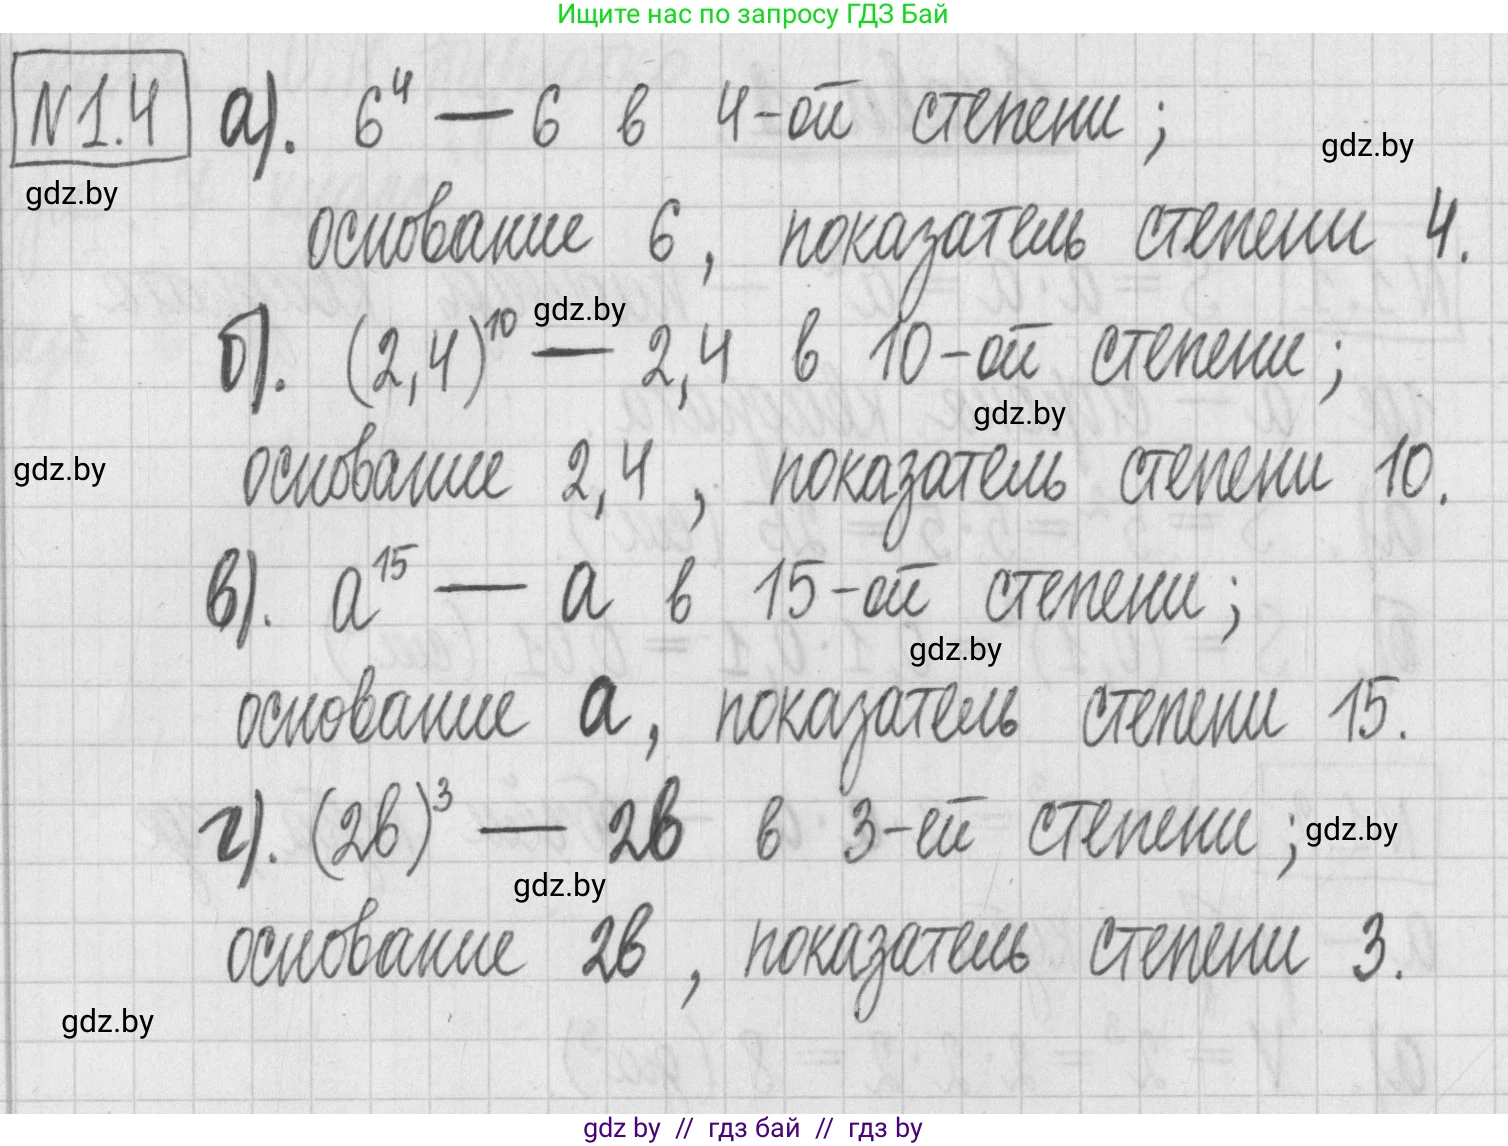 Ищите нас по запросу ГДЗ Бай
N1.4 а). 6⁴ — 6 в 4-ой степени ;
gdz.by
gdz.by
основание 6 , показатель степени 4.
gdz.by
б). (2,4)¹⁰ — 2,4 в 10-ой степени ;
gdz.by
gdz.by
основание 2,4 , показатель степени 10.
в). a¹⁵ — a в 15-ой степени ;
gdz.by
основание a , показатель степени 15.
г). (2b)³ — 2b в 3-ей степени ;
gdz.by
gdz.by
основание 2b , показатель степени 3.
gdz.by
gdz by // гдз бай // гдз by